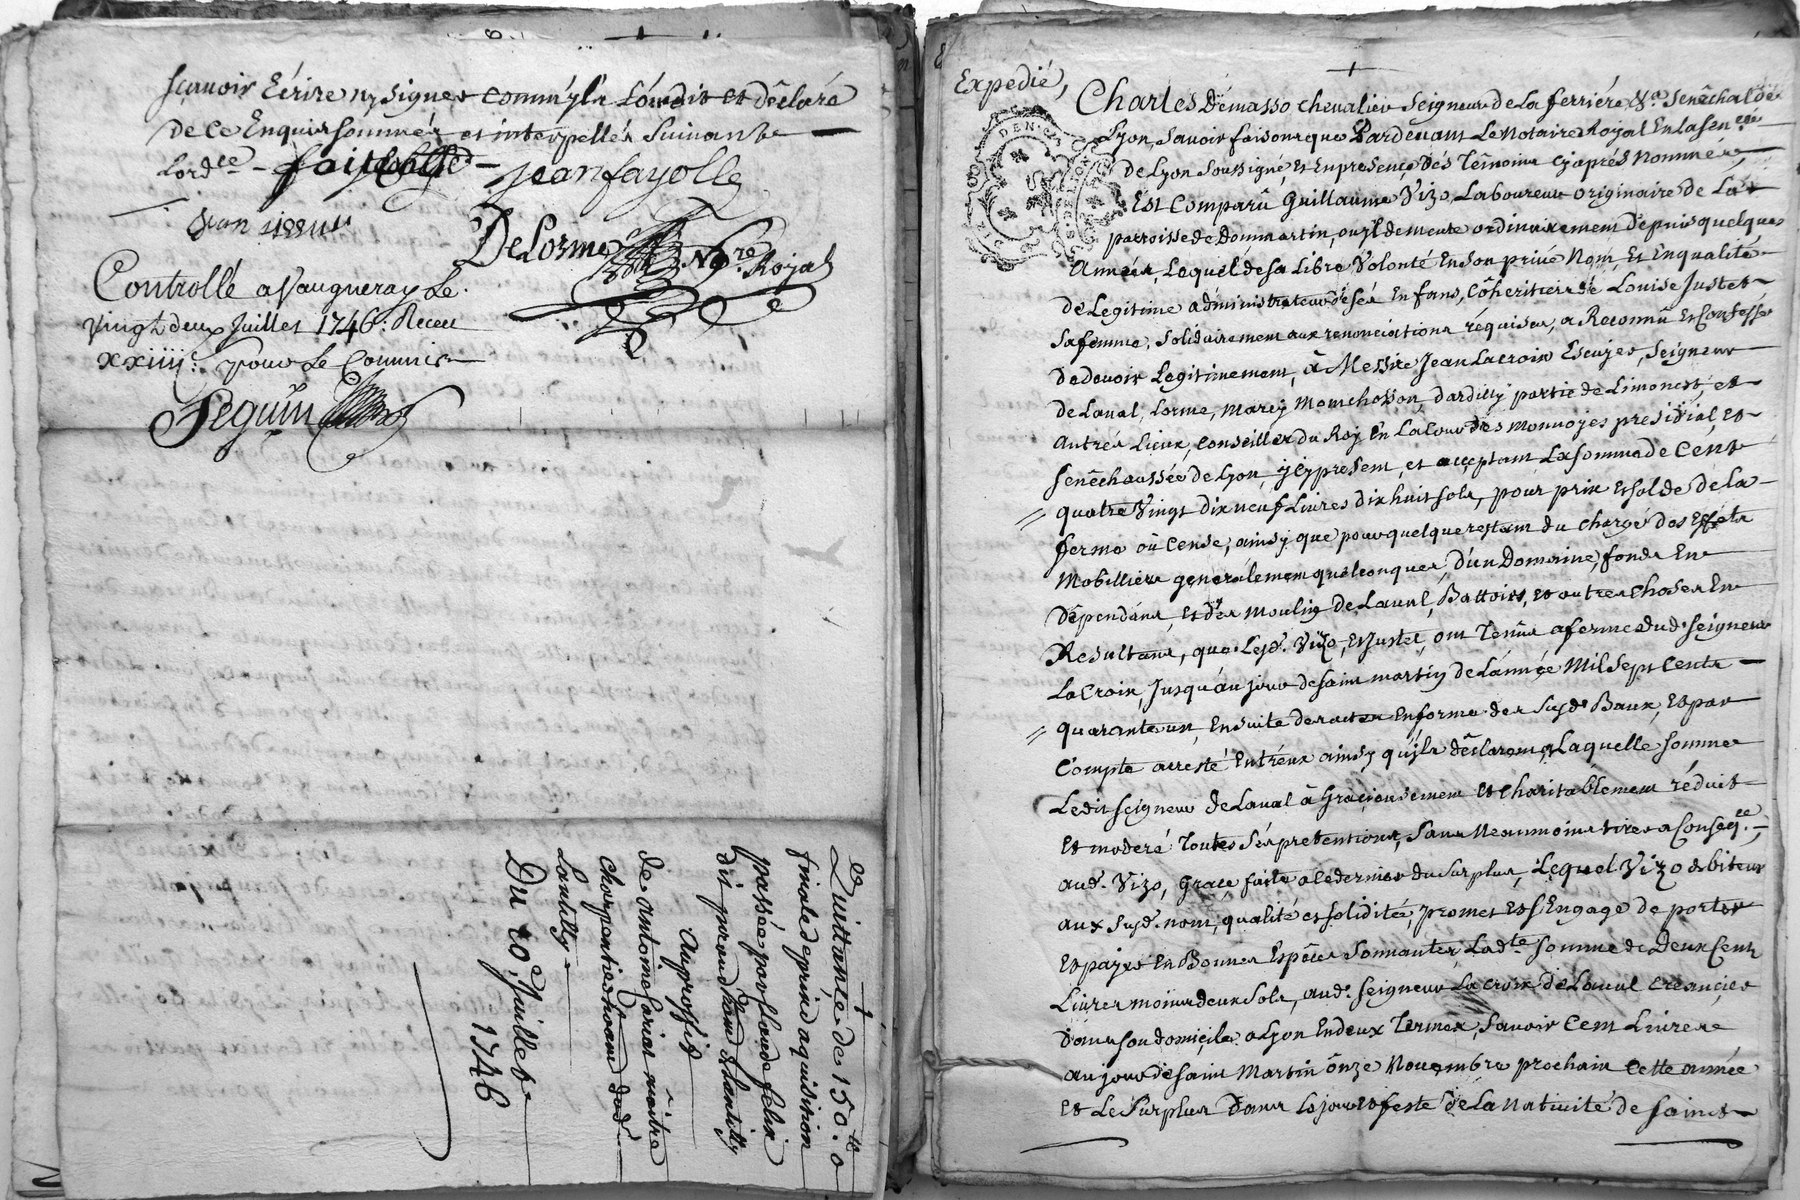 sçavoir Ecrire ny signer comm'yls L'ont dit et déclaré
de ce Enquis sommés et interpellés Suivant
Lord.ce
Jean fayolle
DeLorme No.re Royal
Controllé a Vaugneray Le
vingt deux Juillet 1746. Receu
xxiiij s. pour Le Commis
Seguin
Quittance de 150. lt 0
finale de prix d'aquisition
passée par Claude felix
dit jurend de Lantilly
au proffit
de antoine Cariat maitre
charpentier dud.
Lantilly
Du 20.e Juillet
1746
Expedié,
Charles Démasso chevalier Seigneur de La ferriére &.a Senêchal de
Lyon, savoir faisons que Pardevant Le Notaire Royal En La Sen.ée
de Lyon soussigné, et En presence dés Témoins cy aprés nommés,
Est Comparû Guillaume Vizo, Laboureur originaire de La
parroisse de Dommartin, ou yl demeure ordinairement Depuis quelques
Années, Lequel de sa Libre Volonté En son privé Nom, Et En qualité
de Legitime administrateur de sés Enfans, Cohéritiers de Louise Justet
sa femme, solidairement aux renonciations réquises, a Reconnû Et Confessé
de devoir Legitimement, à Messire Jean Lacroix Escuyer, Seigneur
de Laval, Lorme, Marcy, Montchosson, Dardilly partie de Limonest, et
Autrés Lieux, Conseiller du Roy En La Cour des Monnoyes presidial, et
senêchaussée de Lyon, ycy present, et acceptant La somme de Cent
quatre Vingt dix neuf Livres dix huit sols, pour prix Et solde de La
ferme oû Cense, ainsy que pour quelque restant du chargé des Effets
Mobilliers generalement quelconques, D'un Domaine, fonds En
Dépendans, Et dés moulins de Laval, Battoirs, et autres choses En
Resultans, que Lesd. Vizo, et Justet, ont Tenûs a ferme dud. seigneur
La Croix, Jusqu'au jour de saint martin de L'année Mil Sept Cents
quarante un, Ensuite des actes En forme des susd. Baux, Et par
Compte arresté Entréux ainsy qu'yls déclarent, Laquelle somme
Ledit seigneur de Laval à Gracieusement Et charitablement réduit
Et moderé Toutes Sés pretentions, sans Neanmoins tirer a Conseq.ce,
aud. Vizo, Grace faite a ce dernier du surplus, Lequel Vizo debiteur
aux susd. nom, qualité et solidité, promet Et s'Engage de porter
Et payer En Bonnes Espéces sonnantes, Lad.te somme de Deux Cent
Livres moins deux sols, aud. seigneur La Croix de Laval Créancier
Dans son domicile a Lyon En deux Termes, Savoir Cent Livres
au jour de saint Martin ônze Novembre prochain Cette année
Et Le Surplus Dans Le jour et feste de La Nativité de saint